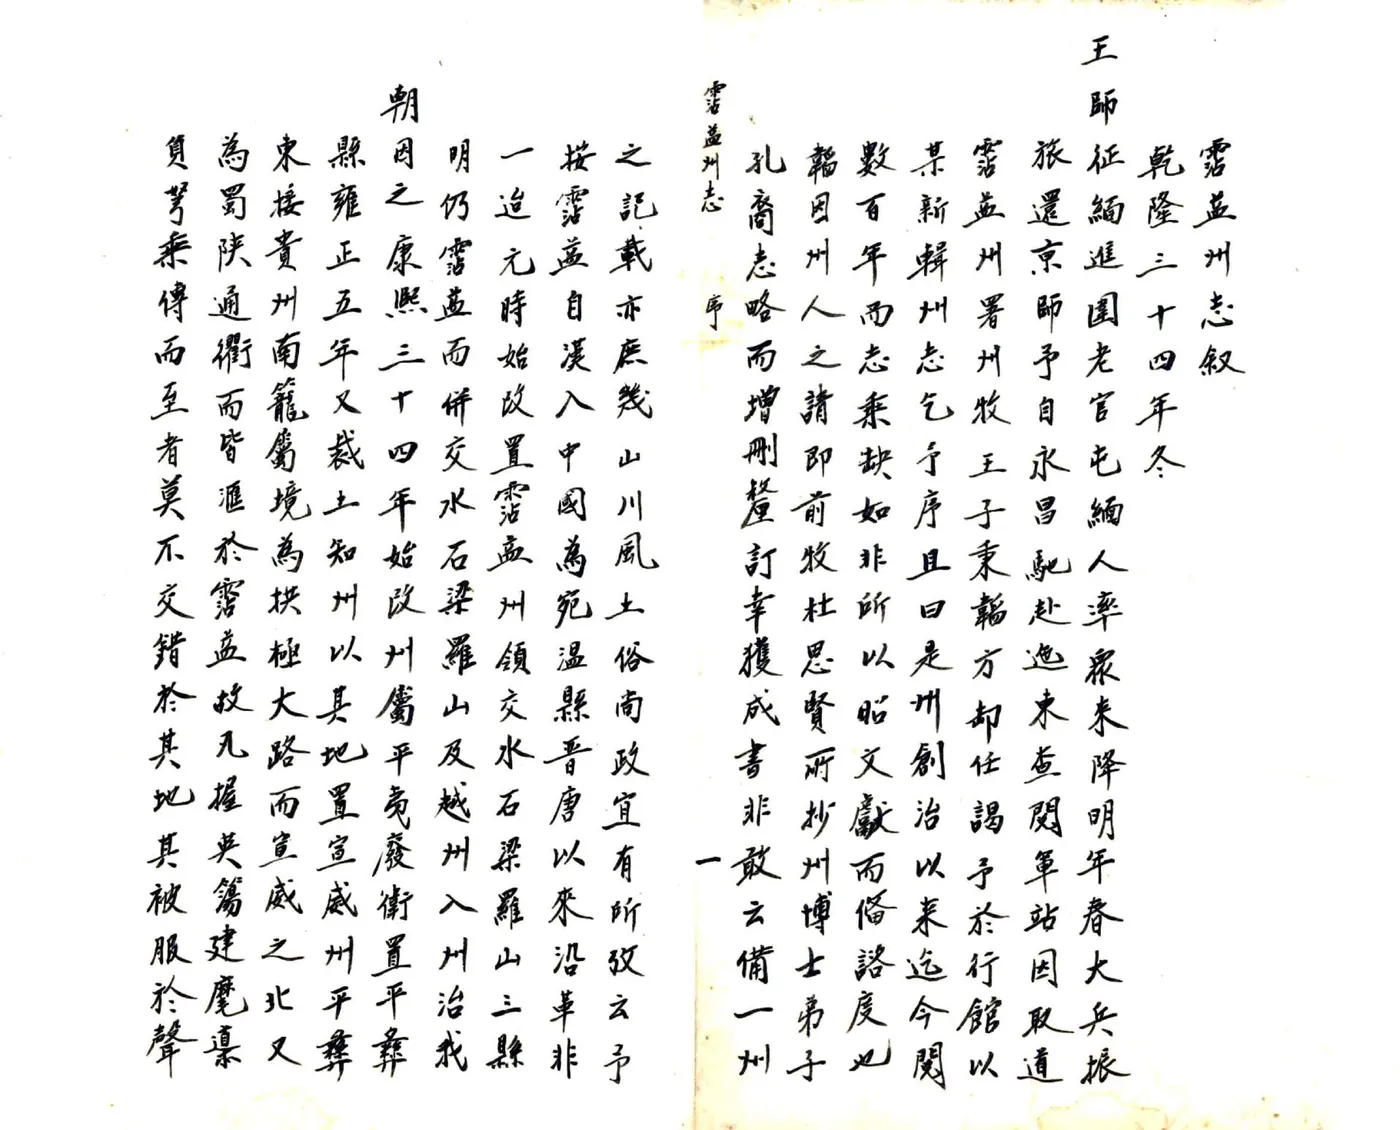 霑益州志叙
乾隆三十四年冬
王師征緬進圍老官屯緬人率衆来降明年春大兵振
旅還京師予自永昌馳赴迤東查閱軍站因取道
霑益州署州牧王子秉韜方卸任謁予於行館以
某新輯州志乞予序且曰是州創治以来迄今閱
數百年而志乘缺如非所以昭文獻而備諮度也
韜因州人之請即前牧杜思賢所抄州博士弟子
孔裔志略而增刪釐訂幸獲成書非敢云備一州
霑益州志 序 一
之記載亦庶幾山川風土俗尚政宜有所攷云予
按霑益自漢入中國為宛温縣晋唐以來沿革非
一迨元時始改置霑益州領交水石梁羅山三縣
明仍霑益而併交水石梁羅山及越州入州治我
朝因之康熙三十四年始改州屬平夷廢衛置平彝
縣雍正五年又裁土知州以其地置宣威州平彝
東接貴州南籠屬境為拱極大路而宣威之北又
為蜀陕通衢而皆滙於霑益故凡握英簜建麾稟
負弩乘傳而至者莫不交錯於其地其被服於聲